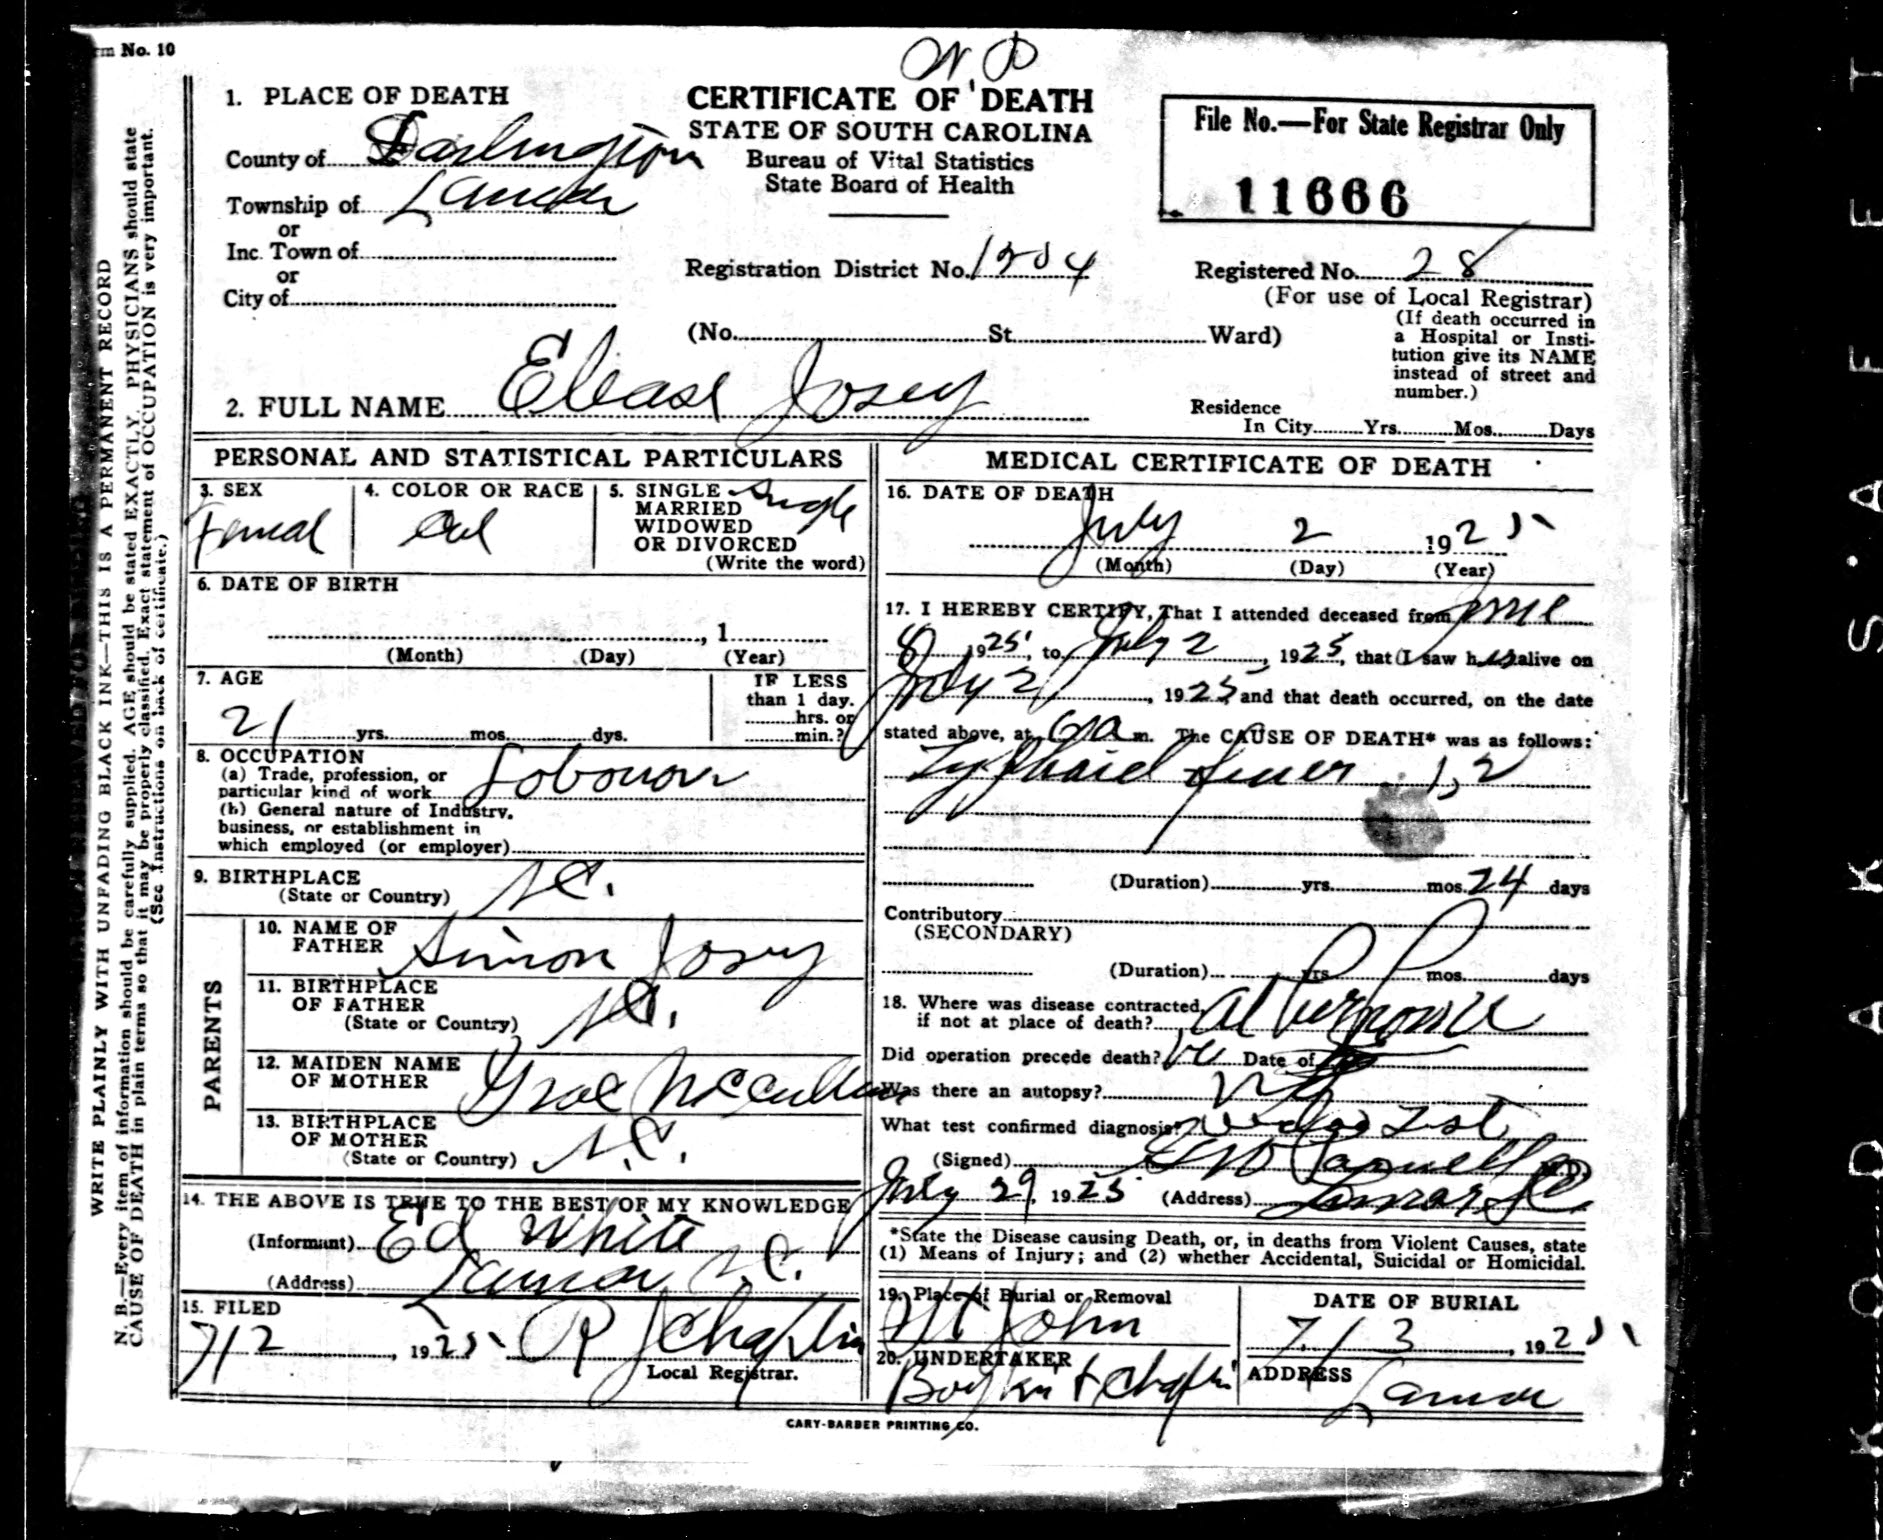 rm No. 10
W. D
1. PLACE OF DEATH
County of Darlington
Township of Lamar
or
Inc. Town of
or
City of
CERTIFICATE OF DEATH
STATE OF SOUTH CAROLINA
Bureau of Vital Statistics
State Board of Health
File No.—For State Registrar Only
11666
Registration District No. 1204
Registered No. 28
(For use of Local Registrar)
(No. St. Ward)
(If death occurred in
a Hospital or Insti-
tution give its NAME
instead of street and
number.)
2. FULL NAME Elease Josey
Residence
In City Yrs. Mos. Days
PERSONAL AND STATISTICAL PARTICULARS
3. SEX
Femal
4. COLOR OR RACE
Col
5. SINGLE Single
MARRIED
WIDOWED
OR DIVORCED
(Write the word)
6. DATE OF BIRTH
, 1
(Month) (Day) (Year)
7. AGE
21 yrs. mos. dys.
IF LESS
than 1 day.
hrs. or
min.?
8. OCCUPATION
(a) Trade, profession, or
particular kind of work Labourer
(b) General nature of Industry,
business, or establishment in
which employed (or employer)
9. BIRTHPLACE
(State or Country) S.C.
PARENTS
10. NAME OF
FATHER Simon Josey
11. BIRTHPLACE
OF FATHER
(State or Country) S.C.
12. MAIDEN NAME
OF MOTHER Grace McCullum
13. BIRTHPLACE
OF MOTHER
(State or Country) S.C.
14. THE ABOVE IS TRUE TO THE BEST OF MY KNOWLEDGE
(Informant) Ed White
(Address) Lamar S.C.
15. FILED
7/2, 1925 R J Chaplin
Local Registrar.
MEDICAL CERTIFICATE OF DEATH
16. DATE OF DEATH
July 2 1925
(Month) (Day) (Year)
17. I HEREBY CERTIFY, That I attended deceased from June
8 1925, to July 2, 1925, that I saw her alive on
July 2, 1925 and that death occurred, on the date
stated above, at 6 a m. The CAUSE OF DEATH* was as follows:
Typhoid fever 1,2
(Duration) yrs. mos. 24 days
Contributory
(SECONDARY)
(Duration) yrs. mos. days
18. Where was disease contracted,
if not at place of death? at her home
Did operation precede death? no Date of
Was there an autopsy? no
What test confirmed diagnosis? test
(Signed) M.D.
July 29, 1925 (Address) Lamar S.C.
*State the Disease causing Death, or, in deaths from Violent Causes, state
(1) Means of Injury; and (2) whether Accidental, Suicidal or Homicidal.
19. Place of Burial or Removal
Mt John
DATE OF BURIAL
7/3, 1925
20. UNDERTAKER
Boykin & Chaplin
ADDRESS
Lamar
CARY-BARBER PRINTING CO.
WRITE PLAINLY WITH UNFADING BLACK INK—THIS IS A PERMANENT RECORD
N. B.—Every item of information should be carefully supplied. AGE should be stated EXACTLY. PHYSICIANS should state
CAUSE OF DEATH in plain terms so that it may be properly classified. Exact statement of OCCUPATION is very important.
(See instructions on back of certificate.)
KODAK S'AFETY